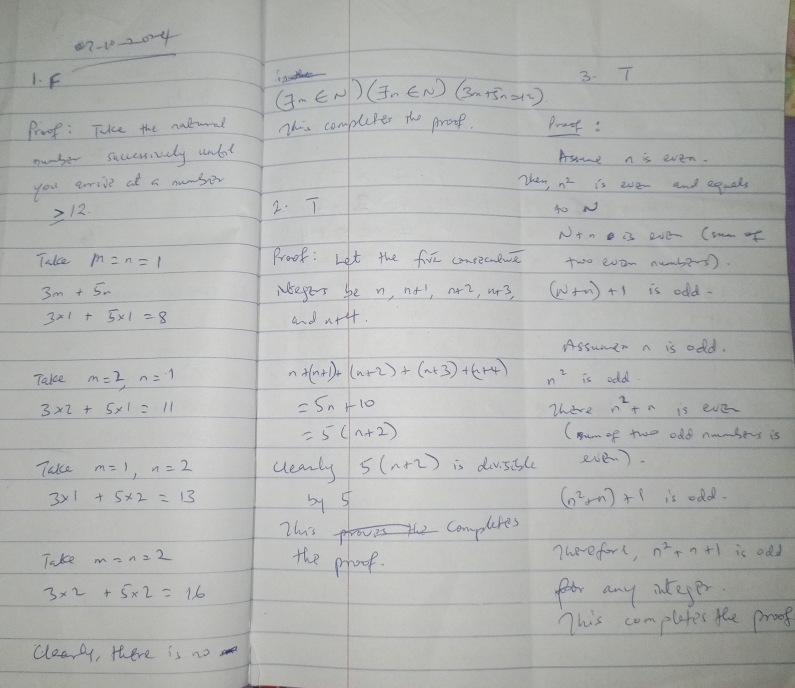 02-10-2024
1. F
Proof: Take the natural
number successively until
you arrive at a number
≥ 12.
Take m = n = 1
3m + 5n
3×1 + 5×1 = 8
Take m = 2, n = 1
3×2 + 5×1 = 11
Take m = 1, n = 2
3×1 + 5×2 = 13
Take m = n = 2
3×2 + 5×2 = 16
Clearly, there is no
(∃m ∈ N)(∃n ∈ N)(3m+5n=12)
This completes the proof.
2. T
Proof: Let the five consecutive
integers be n, n+1, n+2, n+3,
and n+4.
n+(n+1)+(n+2)+(n+3)+(n+4)
= 5n + 10
= 5(n+2)
Clearly 5(n+2) is divisible
by 5
This proves the completes
the proof.
3. T
Proof:
Assume n is even.
Then, n² is even and equals
to N
N+n is even (sum of
two even numbers).
(N+n) + 1 is odd.
Assume n is odd.
n² is odd
There n² + n is even
(sum of two odd numbers is
even).
(n²+n) + 1 is odd.
Therefore, n² + n + 1 is odd
for any integer.
This completes the proof